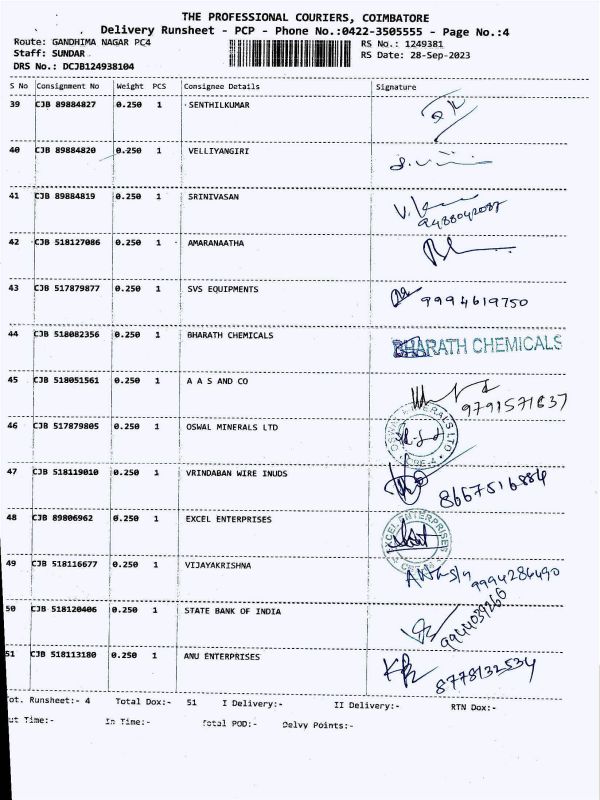 THE PROFESSIONAL COURIERS, COIMBATORE
Delivery Runsheet - PCP - Phone No.:0422-3505555 - Page No.:4
Route: GANDHIMA NAGAR PC4 RS No.: 1249381
Staff: SUNDAR RS Date: 28-Sep-2023
DRS No.: DCJB124938104
S No Consignment No Weight PCS Consignee Details Signature
39 CJB 89884827 0.250 1 SENTHILKUMAR
40 CJB 89884820 0.250 1 VELLIYANGIRI
41 CJB 89884819 0.250 1 SRINIVASAN
9488042087
42 CJB 518127086 0.250 1 AMARANAATHA
43 CJB 517879877 0.250 1 SVS EQUIPMENTS 9994619750
44 CJB 518082356 0.250 1 BHARATH CHEMICALS BHARATH CHEMICALS
45 CJB 518051561 0.250 1 A A S AND CO
9791571637
46 CJB 517879805 0.250 1 OSWAL MINERALS LTD OSWAL MINERALS LTD CBE-4
47 CJB 518119010 0.250 1 VRINDABAN WIRE INUDS 8667516884
48 CJB 89806962 0.250 1 EXCEL ENTERPRISES EXCEL ENTERPRISES
49 CJB 518116677 0.250 1 VIJAYAKRISHNA 9994286490
50 CJB 518120406 0.250 1 STATE BANK OF INDIA 9944039266
51 CJB 518113180 0.250 1 ANU ENTERPRISES
8778132534
ot. Runsheet:- 4 Total Dox:- 51 I Delivery:- II Delivery:- RTN Dox:-
ut Time:- In Time:- Total POD:- Delvy Points:-